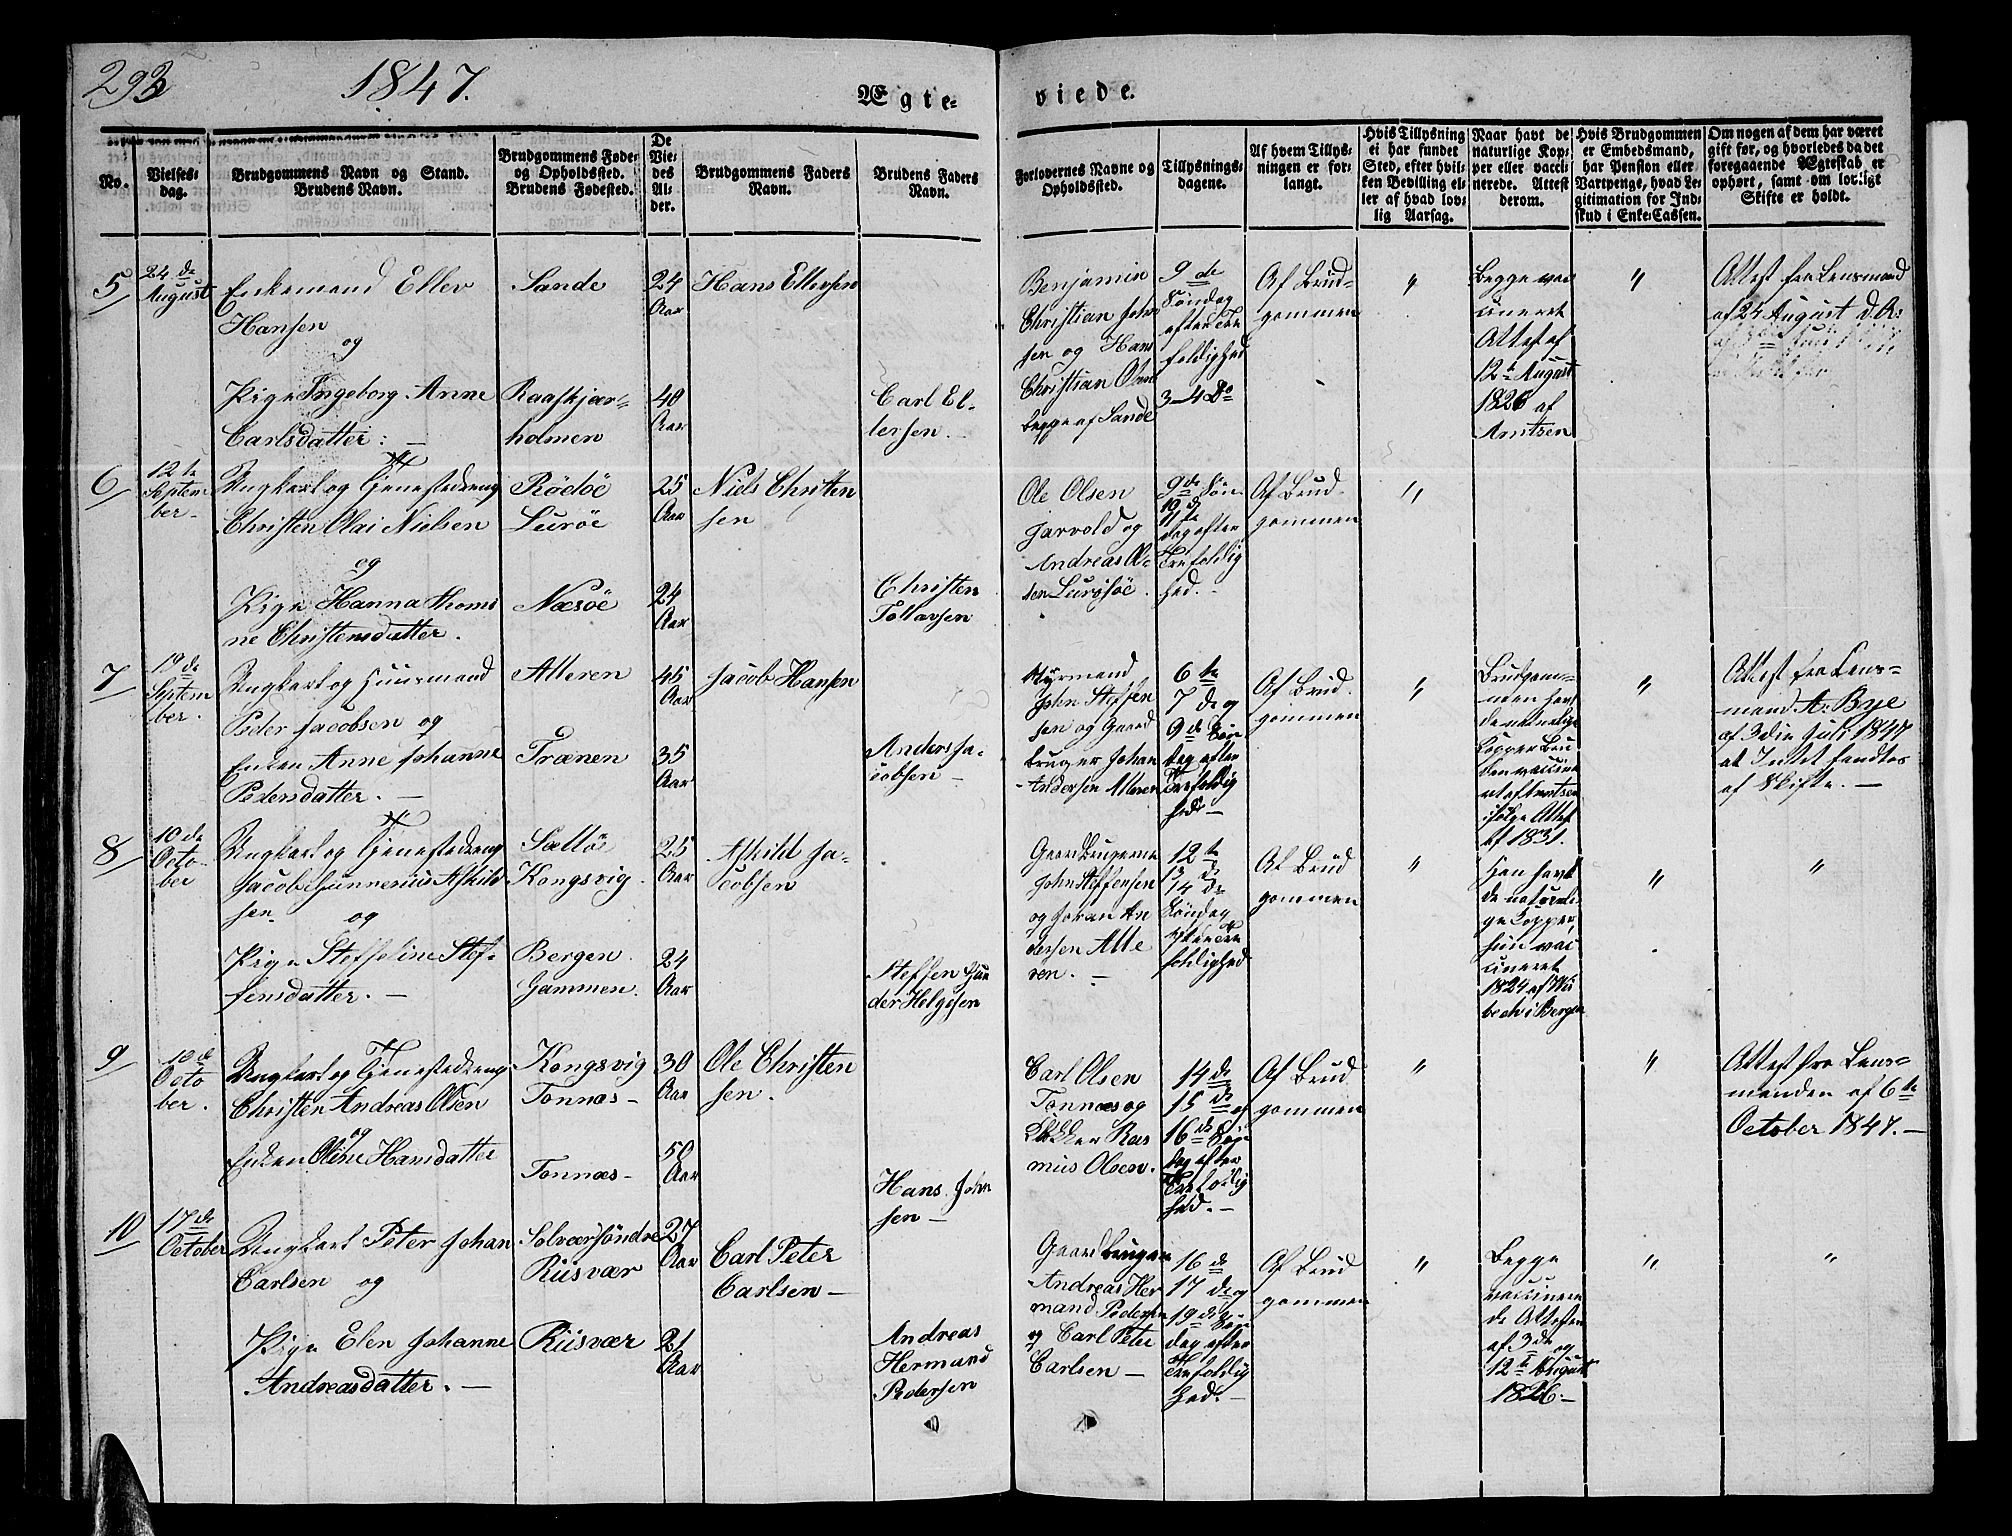 293
1847.
Ægte-
viede.
No.
Vielses-
dag.
Brudgommens Navn og Stand.
Brudens Navn.
Brudgommens Føde-
og Opholdssted.
Brudens Fødested.
De
Vie-
des
Al-
der.
Brudgommens Faders
Navn.
Brudens Faders
Navn.
Forlovernes Navne og
Opholdssted.
Tillysnings-
dagene.
Af hvem Tillys-
ningen er for-
langt.
Hvis Tillysning
ei har fundet
Sted, efter hvil-
ken Bevilling el-
ler af hvad lov-
lig Aarsag.
Naar havt de
naturlige Kop-
per eller vacci-
nerede. Attest
derom.
Hvis Brudgommen
er Embedsmand,
har Pension eller
Vartpenge, hvad Le-
gitimation for Ind-
skud i Enke-Cassen.
Om nogen af dem har været
gift før, og hvorledes da det
foregaaende Ægteskab er
ophørt, samt om lovligt
Skifte er holdt.
5
24 de
August
Enkemand Ellev
Hansen
og
Pige Ingeborg Anne
Carlsdatter: —
Sande
Raaskjær-
holmen
24
Aar
40
Aar
Hans Ellevsen
Carl El-
lersen.
Benjamin
Christian John
sen og Hans
Christian Olsen
begge af Sande
9 de
Søndag
efter Tre
foldighed
3-4 Do
Af Brud-
gommen
"
Begge vac
cineret
Attest af
12te August
1826 af
Arntsen
"
Attest fra Lensmand
af 24 August d.A:
6
12te
Septem
ber -
Ungkarl og Tjenestedreng
Christen Olai Nielsen
og
Pige Hanna Thoms
ne Christensdatter.
Rödöe
Luröe
Næsöe
25
Aar
24
Aar
Niels Christen
sen
Christen
Tollavsen
Ole Olsen
Jarvold og
Andreas Ol-
sen Luröe.
9de Søn
10 d
11te
dag efter
Trefoldig
hed. -
Af Brud-
gommen
"
7
19 de
Septem
ber.
Ungkarl og Huusmand
Peder Jacobsen og
Enken Anne Johanne
Pedersdatter. —
Alteren
Trænen
45
Aar
35
Aar
Jacob Hansen
Anders Ja-
cobsen —
Styrmand
John Steffen
sen og Gaard
bruger Johan
Andersen Alteren
6 te
7 de og
9 de Søn
dag efter
Trefoldig
hed —
Af Brud.
gommen
"
Brudgom-
men havt
de naturlige
Kopper Bru
den vaccine
ret af Arntsen
ifølge Attest
af 1831.
"
Attest fra Lens-
mand A. Bye
af 3die Juli 1847
at Intet fandtes
af Skifte. —
8
10 de
Octo-
ber
Ungkarl og Tjenestedreng
Jacob Gunnerius Askild
sen. og
Pige Steffeline Stef-
fensdatter. —
Selloe
Kongsvig.
Bergen.
Gammen.
25
Aar
24
Aar
Askild Ja-
cobsen
Steffen Gun
der Helgesen
Gaardbrugerne
John Steffensen
og Johan An
dersen Alte
ren. —
12 te
13 d
14 de
Søndag
efter Tre
foldighed
Af Brud
gommen
"
Han havt
de naturli-
ge Kopper,
hun vac
cineret
1824 af Wi
bech i Bergen
"
"
9
10 d
Octo
ber.
Ungkarl og Tjenestedreng
Christen Andreas Olsen
og
Enken Oline Hansdatter
Kongsvig
Tonnæs -
Tonnæs -
30
Aar
50
Aar
Ole Christen
sen.
Hans John
sen —
Carl Olsen
Tonnæs og
Ras
mus Olsen.
14 de
15 d og
16 de Søn
dag efter
Trefoldig
hed. —
Af Brud
gommen
"
"
Attest fra Lens-
manden af 6te
October 1847. —
10
17 de
October
Ungkarl Peter Johan
Carlsen og
Pige Elen Johanne
Andreasdatter. —
Solværsöndre
Riisvær
Riisvær
27
Aar
21
Aar
Carl Peter
Carlsen —
Andreas
Hermand
Pedersen
Gaardbruger
Andreas Her
mand Pedersen
og Carl Peter
Carlsen —
16 de
17 de og
19 de Søn
dag efter
Trefoldig
hed. —
Af Brud
gommen
"
Begge
vaccinere
de Attester
af 3de og
12te August
1826. —
"
"